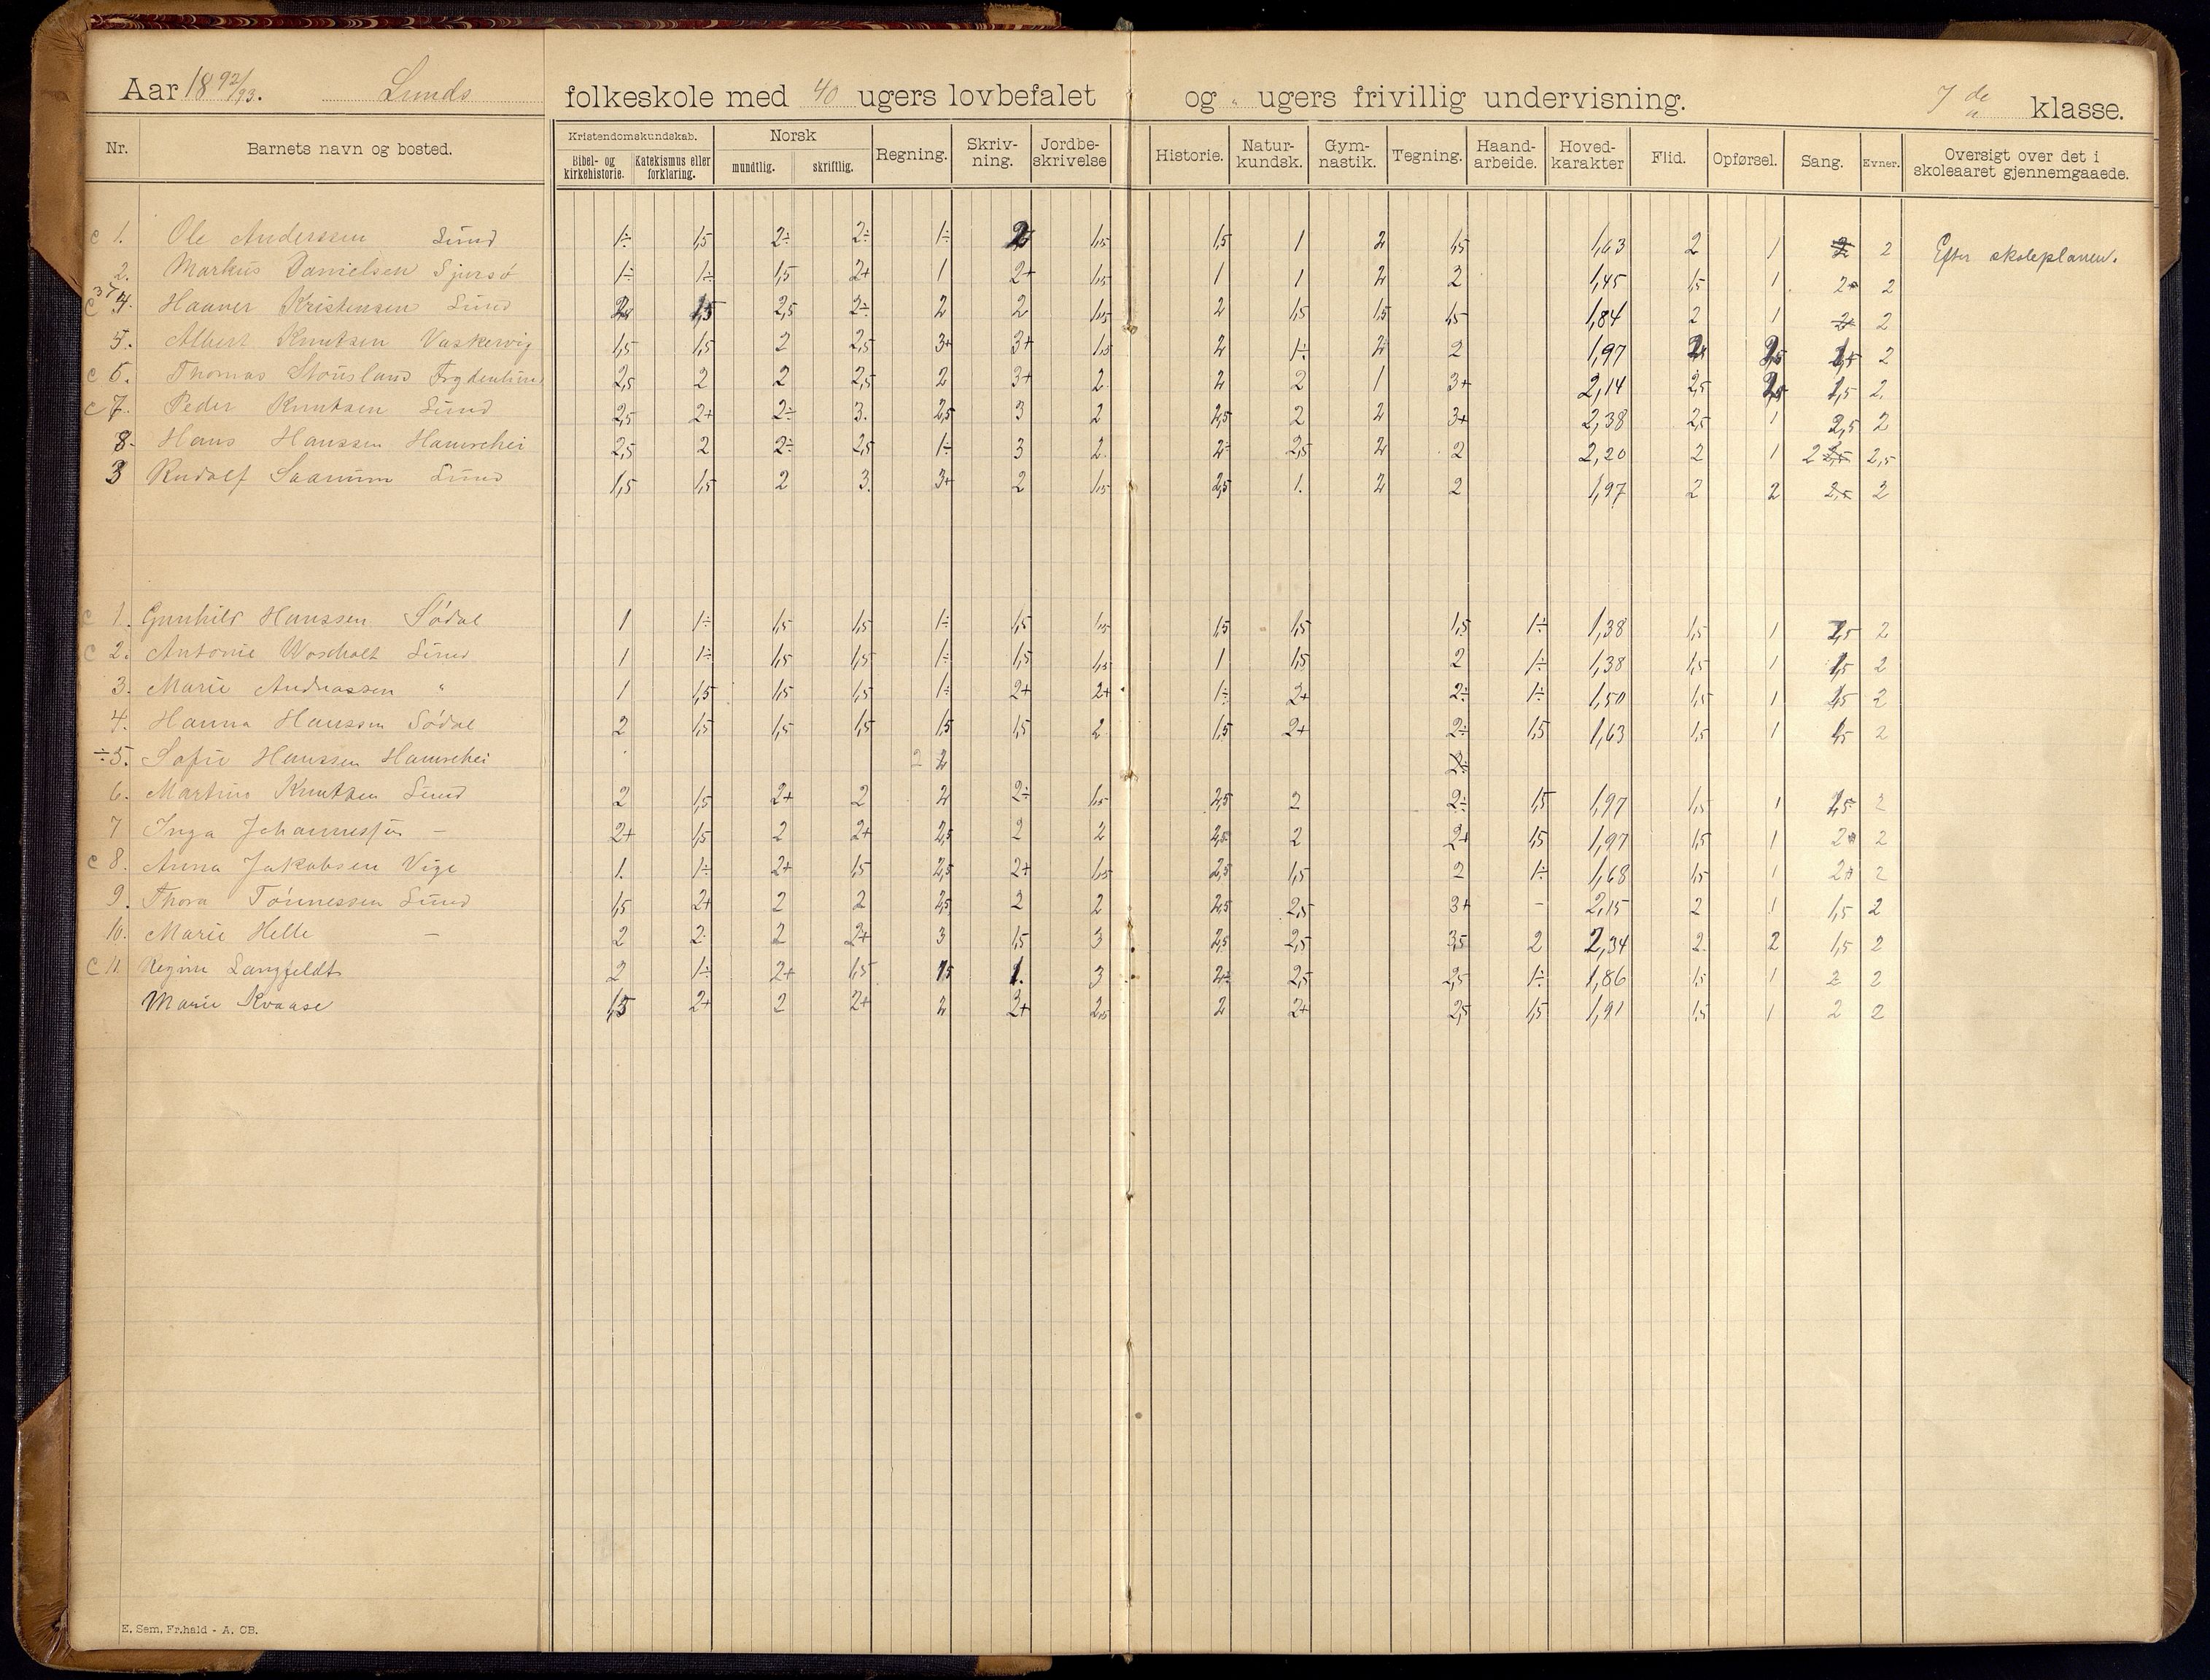 Aar 1892/93. Lunds folkeskole med 40 ugers lovbefalet og " ugers frivillig undervisning. 7de klasse.
Nr. Barnets navn og bosted. Kristendomskundskab. Bibel- og kirkehistorie. Katekismus eller forklaring. Norsk mundtlig. skriftlig. Regning. Skriv-ning. Jordbe-skrivelse Historie. Natur-kundsk. Gym-nastik. Tegning. Haand-arbeide. Hoved-karakter Flid. Opførsel. Sang. Evner. Oversigt over det i skoleaaret gjennemgaaede.
c 1. Ole Anderssen Lund 1÷ 1,5 2÷ 2÷ 1÷ 2 1,5 1,5 1 2 1,5 1,63 2 1 2 2 Efter skoleplanen.
2. Markus Danielsen Sjursø 1÷ 1÷ 1,5 2+ 1 2+ 1,5 1 1 2 2 1,45 1,5 1 2+ 2
c 4. Haaver Kristensen Lund 1,5 2,5 2÷ 2 2 1,5 2 1,5 1,5 1,5 1,84 2 1 2+ 2
5. Albert Knutsen Vaskervig 1,5 1,5 2 2,5 3+ 3+ 1,5 2 1÷ 2 2 1,97 2,5 1,5 2
c 6. Thomas Stousland Frydenlund 2,5 2 2 2,5 2 3+ 2 2 2 1 3+ 2,14 2,5 2,5 1,5 2
c 7. Peder Knutsen Lund 2,5 2+ 2÷ 3 2,5 3 2 2,5 2 2 3+ 2,38 2,5 1 2,5 2
8. Hans Hanssen Hamrehei 2,5 2 2÷ 2,5 1÷ 3 2 2÷ 2,5 2 2 2,20 2 1 2 2,5 2,5
3 Rudolf Saanum Lund 1,5 1,5 2 3 3+ 2 1,5 2,5 1 2 2 1,97 2 2 2,5 2
c 1. Gunhild Hanssen Sødal 1 1÷ 1,5 1,5 1÷ 1,5 1,5 1,5 1,5 1,5 1÷ 1,38 1,5 1 1,5 2
c 2. Antonie Woxholt Lund 1 1÷ 1,5 1,5 1÷ 1,5 1,5 1 1,5 2 1÷ 1,38 1,5 1 1,5 2
3. Marie Andreassen " 1 1,5 1,5 1,5 1÷ 2+ 2+ 1÷ 2+ 2÷ 1÷ 1,50 1,5 1 1,5 2
4. Hanna Hanssen Sødal 2 1,5 1,5 1,5 1,5 1,5 2 1,5 2+ 2÷ 1,5 1,63 1,5 1 1,5 2
÷5. Sofie Hanssen Hamrehei 2 2 2÷
6. Martine Knutsen Lund 2 1,5 2+ 2 2 2÷ 1,5 2,5 2 2÷ 1,5 1,97 1,5 1 2,5 2
7 Inga Johannessen – 2+ 1,5 2 2+ 2,5 2 2 2,5 2 2+ 1,5 1,97 1,5 1 2+ 2
c 8. Anna Jakobsen Vige 1 1÷ 2+ 1,5 2,5 2+ 1,5 2,5 1,5 2 1÷ 1,68 1,5 1 2+ 2
9. Thora Tønnessen Lund 1,5 2+ 2 2 2,5 2 2 2,5 2,5 3+ – 2,15 2 1 1,5 2
10. Marie Helle – 2 2 2 2+ 3 1,5 3 2,5 2,5 3,5 2 2,34 2 2 1,5 2
c 11. Regine Langfeldt 2 1÷ 2+ 1,5 1,5 1 3 2÷ 2,5 2,5 1÷ 1,86 1,5 1 2 2
Marie Kvaase 1,5 2+ 2 2+ 2 3+ 2,5 2 2+ 2,5 1,5 1,91 1,5 1 2 2
E. Sem, Fr.hald - A. CB.